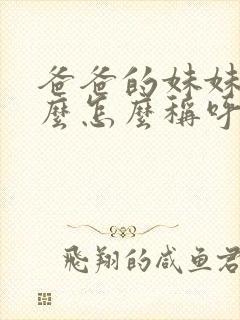 爸爸的妹妹
麼怎麼稱呼
飛翔的咸鱼君